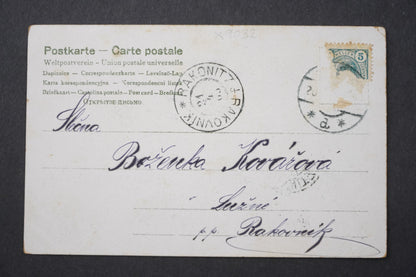 Postkarte — Carte postale
Weltpostverein - Union postale universelle
Dopisnice - Correspondenzkarte - Levelező-Lap
Karta korespondencyjna - Korespondenční lístek
Briefkaart - Cartolina postale - Postcard - Brefkort
ОТКРЫТОЕ ПИСЬМО
5
RAKONITZ
RAKOVNÍK
Slečna
Boženka Kovářová
Lužné
pp. Rakovník